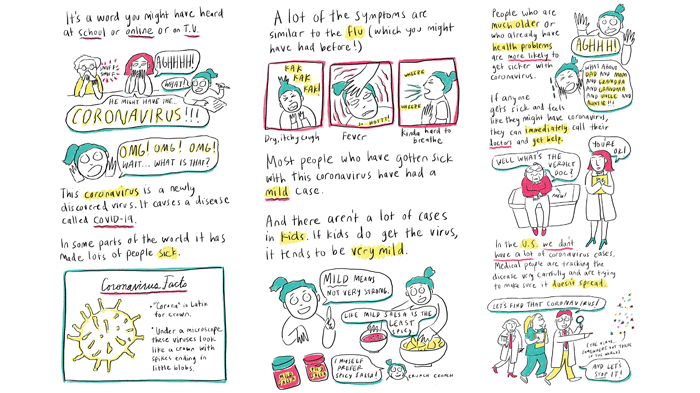 It's a word you might have heard
at school or online or on T.V.
SNIFF
SNIFF
AGHHHH!
WHAT!
HE MIGHT HAVE THE...
CORONAVIRUS!!!
OMG! OMG! OMG!
WAIT... WHAT IS THAT?
This coronavirus is a newly
discovered virus. It causes a disease
called COVID-19.
In some parts of the world it has
made lots of people sick.
Coronavirus Facts
"Corona" is Latin
for crown.
Under a microscope,
these viruses look
like a crown with
spikes ending in
little blobs.
A lot of the symptoms are
similar to the flu (which you might
have had before!)
KAK
KAK
KAK!
HOT!!
WHEEZE
WHEEZE
Dry, itchy cough
Fever
Kinda hard to
breathe
Most people who have gotten sick
with this coronavirus have had a
mild case.
And there aren't a lot of cases
in kids. If kids do get the virus,
it tends to be very mild.
MILD MEANS
NOT VERY STRONG.
LIKE MILD SALSA IS THE
LEAST
SPICY
MILD
SALSA
SALSA
I MYSELF
PREFER
SPICY SALSA!
CRUNCH CRUNCH
People who are
much older or
who already have
health problems
are more likely to
get sicker with
coronavirus.
AGHHH!
WHAT ABOUT
DAD AND MOM
AND GRANDPA
AND GRANDMA
AND UNCLE AND
AUNTIE!!!
If anyone
gets sick and feels
like they might have coronavirus,
they can immediately call their
doctors and get help.
WELL WHAT'S THE
VERDICT
DOC?
YOU'RE
OK!
In the U.S. we don't
have a lot of coronavirus cases.
Medical people are tracking the
disease very carefully and are trying
to make sure it doesn't spread.
LET'S FIND THAT CORONAVIRUS!
AND LET'S
STOP IT!